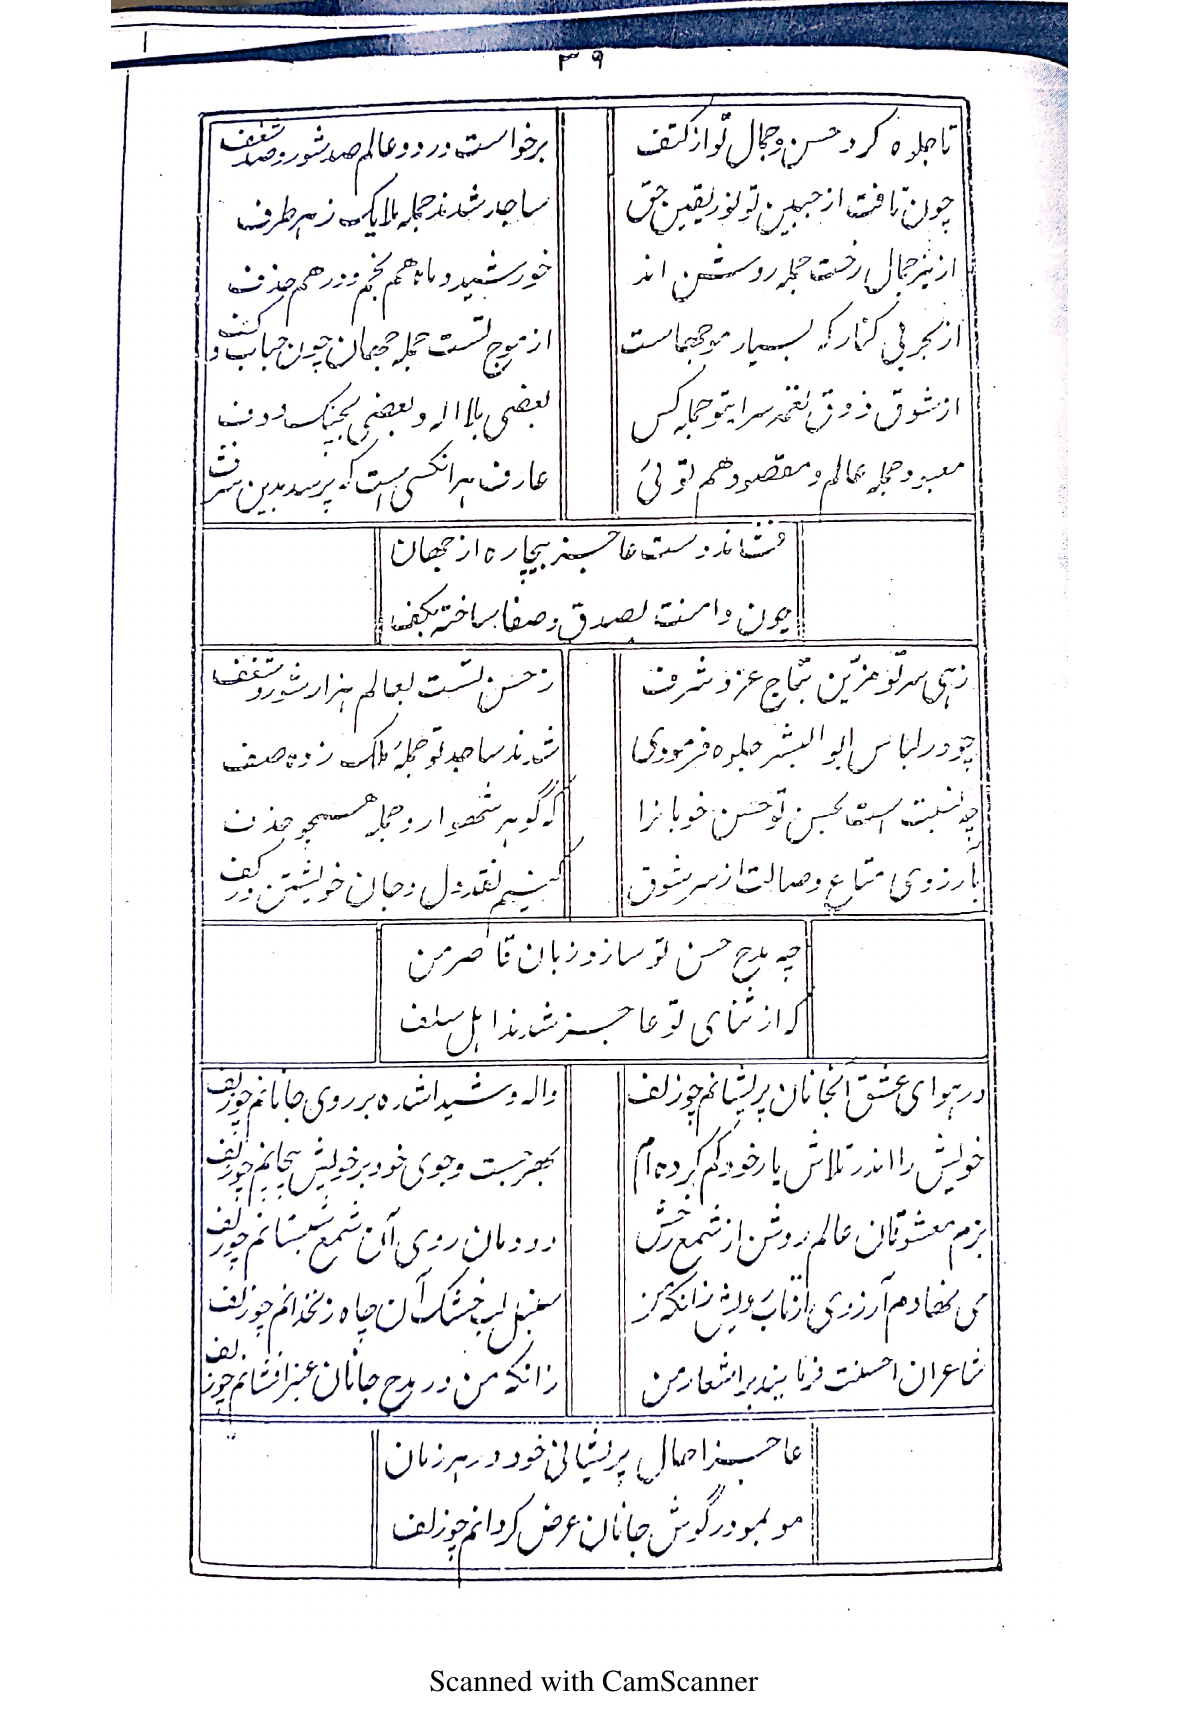 ۳۹
تا جلوه کرد حسن و جمال تو از کتف
برخواست در دو عالم صد شور و صد شغف
چون تافت از جبین تو نور یقین حق
ساجد شدند جمله ملایک ز هر طرف
از نیر جمال رخت جمله روشن اند
خورشید و ماه هم نجم و در هم خذف
از بحر بی کنار که بسیار موجهاست
از موج تست جمله جهان چون حباب و کف
از شوق ذوق نغمه سرا بتو جمله کس
بعضی بلا اله و بعضی بچنک و دف
معبود جمله عالم و مقصود هم توئی
عارف هر انکسی است که پرسد بدین شرف
فشاند دست عاجز بیچاره از جهان
چون دامنت بصدق و صفا ساخته بکف
زهی سر تو مزین بتاج عز و شرف
ز حسن تست بعالم هزار شور و شغف
چو در لباس ابو البشر جلوه فرمودی
شدند ساجد تو جمله ملک زده صف
چه نسبت است بحسن تو حسن خوبانرا
که گوهر شهوار و جمله همچو خذف
بآرزوی متاع وصالت از سر شوق
کنیم نقد دل و جان خویشتن در کف
چه مدح حسن تو سازد زبان قاصر من
که از ثنای تو عاجز شدند اهل سلف
در هوای عشق آنجانان پریشانم چو زلف
واله و شیدا شده بر روی جانانم چو زلف
خویش را اندر تلاش یار خود گم کرده ام
بهر جست وجوی خود بر خویش پیچانم چو زلف
بزم معشوقان عالم روشن از شمع رخش
دودمان روی آن شمع شبستانم چو زلف
می نهادم آرزوی از تاب رویش زانکه کز
سنبل لب خشک آن چاه زنخدانم چو زلف
شاعران احسنت فرمایند بر اشعار من
زانکه من در مدح جانان عنبر افشانم چو زلف
عاجز احوال پریشانی خود در هر زمان
مو بمو در گوش جانان عرض گردانم چو زلف
Scanned with CamScanner